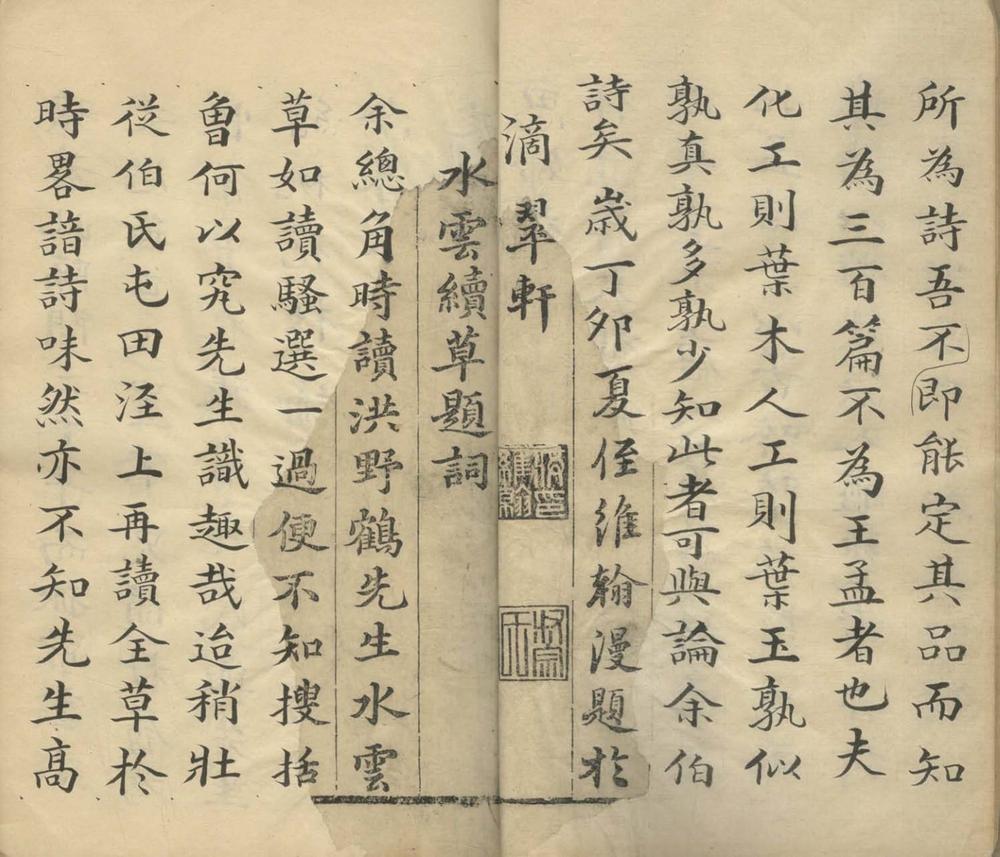 所為詩吾不即能定其品而知
其為三百篇不為王孟者也夫
化工則葉木人工則葉玉孰似
孰真孰多孰少知此者可與論余伯
詩矣歲丁卯夏侄維翰漫題於
滴翠軒
水雲續草題詞
余總角時讀洪野鶴先生水雲
草如讀騷選一過便不知搜括
魯何以究先生識趣哉迨稍壯
從伯氏屯田涇上再讀全草於
時畧諳詩味然亦不知先生高